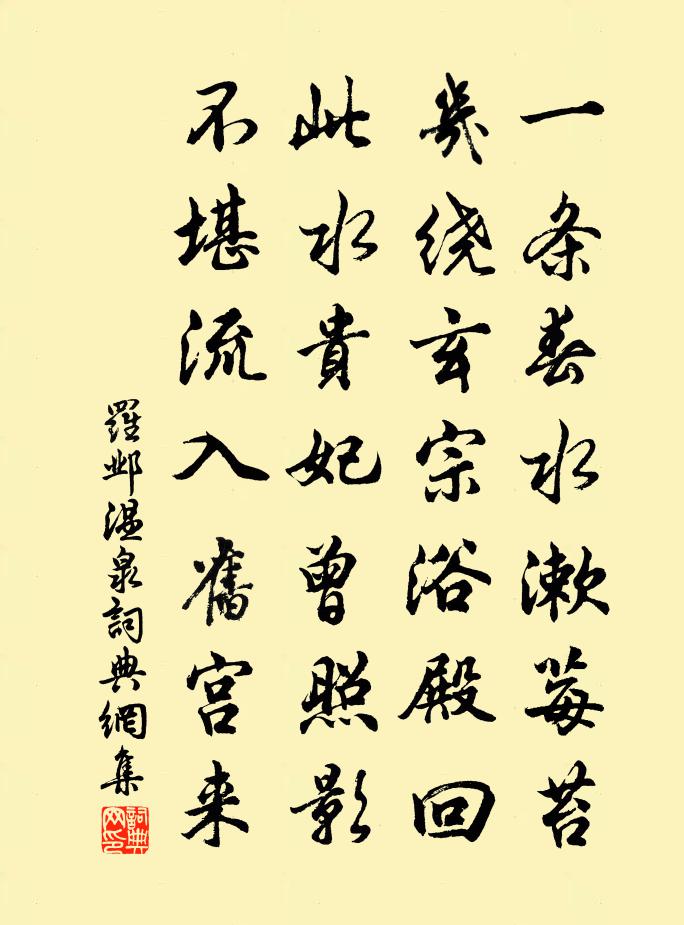 一条春水漱莓苔
幾绕玄宗浴殿回
此水貴妃曾照影
不堪流入舊宫来
羅邺温泉詞典網集
詞典网印